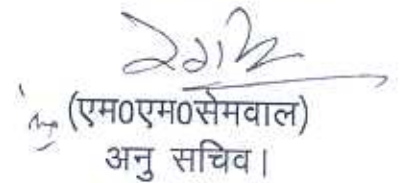 (एम0एम0सेमवाल)
अनु सचिव।